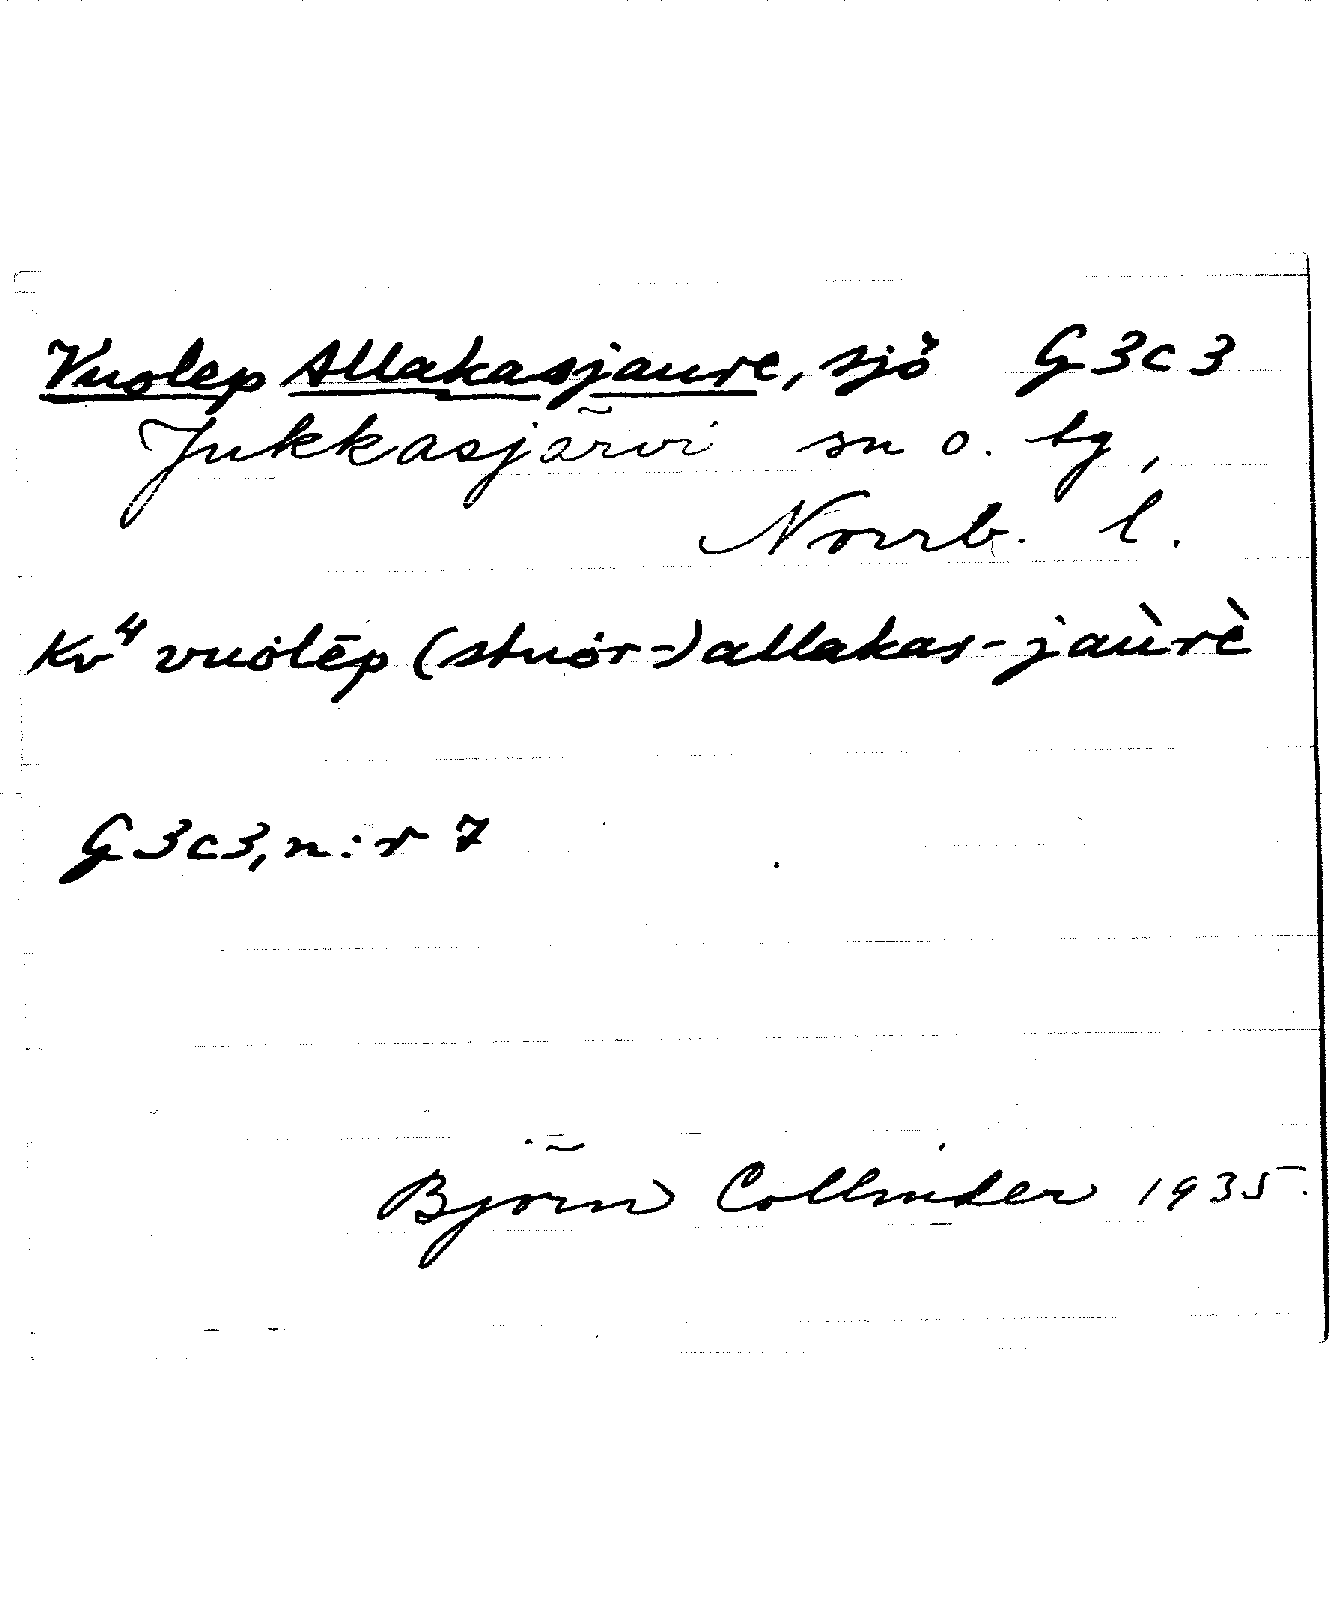 Vuolep Allakasjaure, sjö G3c3
Jukkasjärvi sn o. tg,
Norrb. l.
Kv⁴ vuȯlēp (stuȯr-) allakas-jaùrè
G3c3, n:r 7
Björn Collinder 1935.